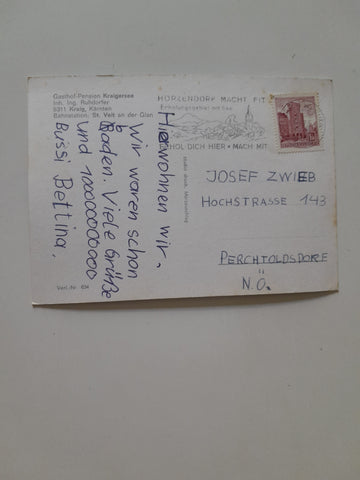 Gasthof-Pension Kraigersee
Inh. Ing. Ruhdorfer
9311 Kraig, Kärnten
Bahnstation: St. Veit an der Glan
Hier wohnen wir.
Wir waren schon
Baden. Viele Grüße
und 10000000000
Bussi Bettina.
Verl.-Nr. 634
HÖRZENDORF MACHT FIT
Erholungsgebiet mit See
ERHOL DICH HIER • MACH MIT
JOSEF ZWIEB
HOCHSTRASSE 143
PERCHTOLDSDORF
N.Ö.